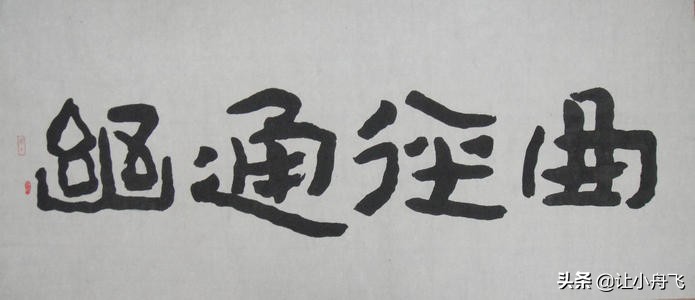 曲径通幽
头条 @让小舟飞